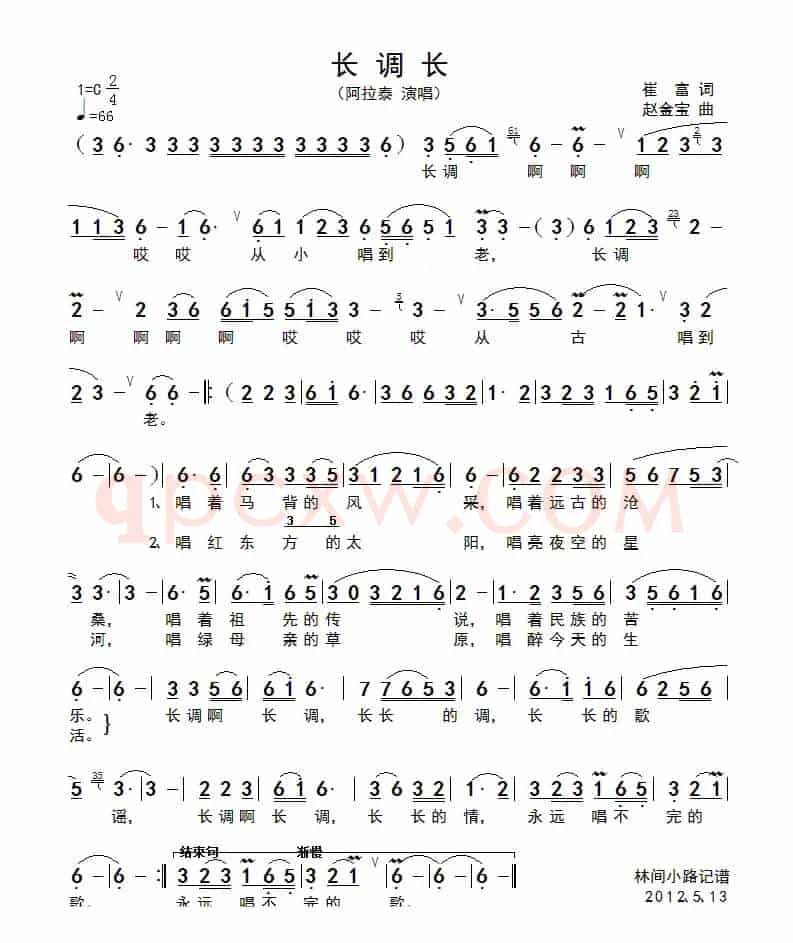 长调长
（阿拉泰 演唱）
1=C 2/4
♩=66
崔 富 词
赵金宝 曲
（3 6· 3 33 3333 3336）3 561 6 - 6 - ∨ 123 3
长调 啊 啊 啊 啊
113 6 - 1 6· ∨ 61 123 6 5651 3 3 -（3）6123 2 -
哎 哎 从 小 唱到 老， 长调
2 - ∨ 2 36 6165 5133 - 3 - ∨ 3·556 2 - 21· 32
啊 啊啊 啊 哎 哎 哎 从 古 唱到
23 - ∨ 66 -‖:（2 223|61 6·|36 6632|1· 2|323 165|3 21|
老。
6 - |6 - ）|6· 6|63335|31216|6 - |62233|567553|
1、唱着马背的风 采，唱着远古的沧
3 5
2、唱红东方的太 阳，唱亮夜空的星
33·|3 - |6· 5|6·1 65|30 3216|2 - |1·223 55|35616|
桑， 唱着祖先的传 说，唱着民族的苦
河， 唱绿母亲的草 原，唱醉今天的生
6 - |6 - |33 56|61 6·|77653|6 - |6·1 161|6256|
乐。 长调啊长调，长长的调，长长的歌
活。
5 3·|3 - |223|61 6·|36 632|1· 2|323 165|3 21|
谣， 长调啊长调，长长的情，永远唱不完的
结束句 渐慢
6 - |6 - :‖323 165|3 21|6 - ∨|6 - ‖
歌。 永远唱不完的歌。
林间小路记谱
2012.5.13
qpcxw.com